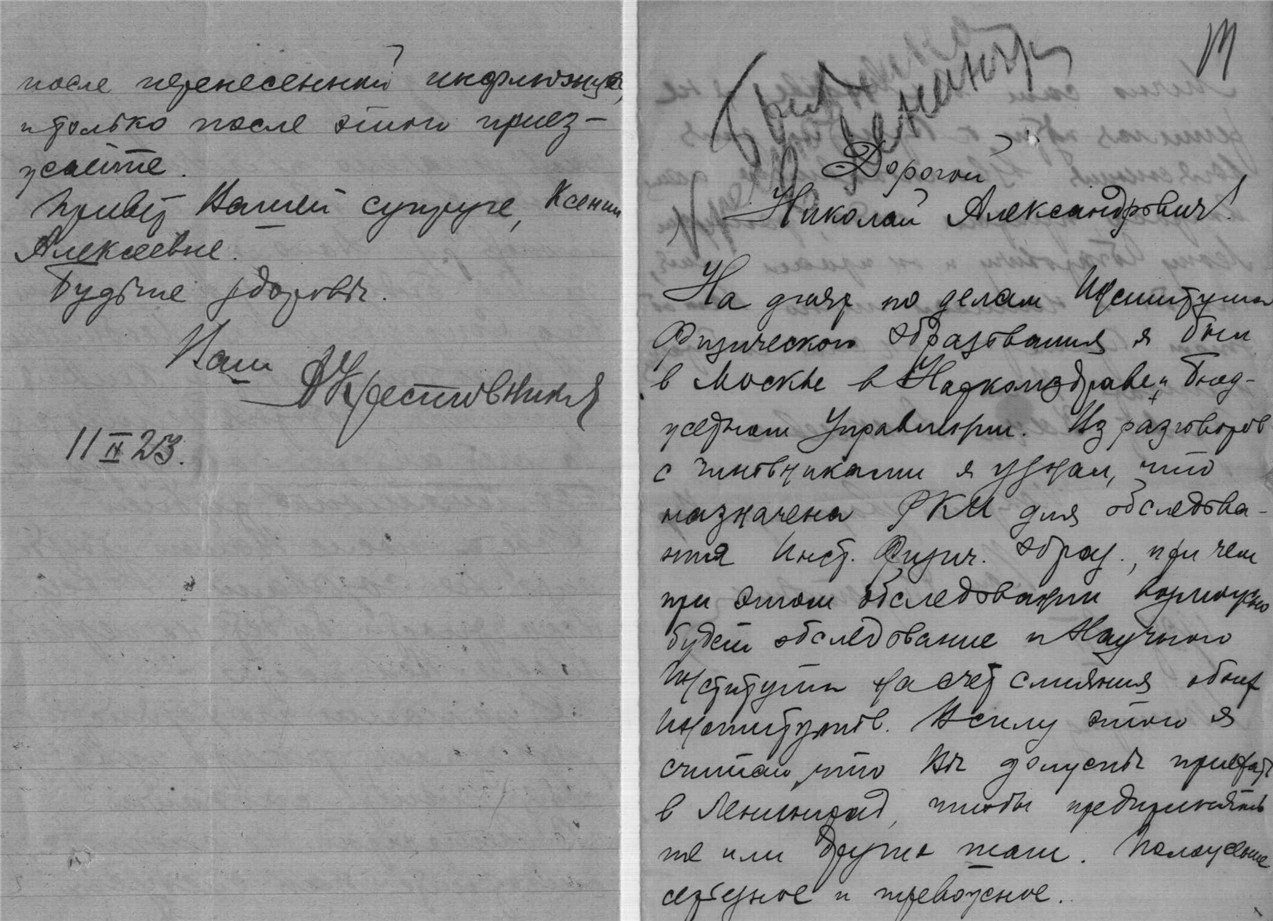 после перенесенной инфлюэнцы,
и только после этого приез-
жайте.
Привет Вашей супруге, Ксении
Алексеевне.
Будьте здоровы.
Ваш АКрестовников
11 II 23.
Дорогой
Николай Александрович!
На днях по делам Института
Физического образования я был
в Москве в Наркомздраве и Бюд-
жетном Управлении. Из разговоров
с чиновниками я узнал, что
назначена РКИ для обследова-
ния Инст. Физич. образ., при чем
при этом обследовании возможно
будет обследование и Научного
Института на счет слияния обоих
институтов. В силу этого я
считаю, что Вы должны приехать
в Ленинград, чтобы предпринять
те или другие шаги. Положение
серьезное и тревожное.